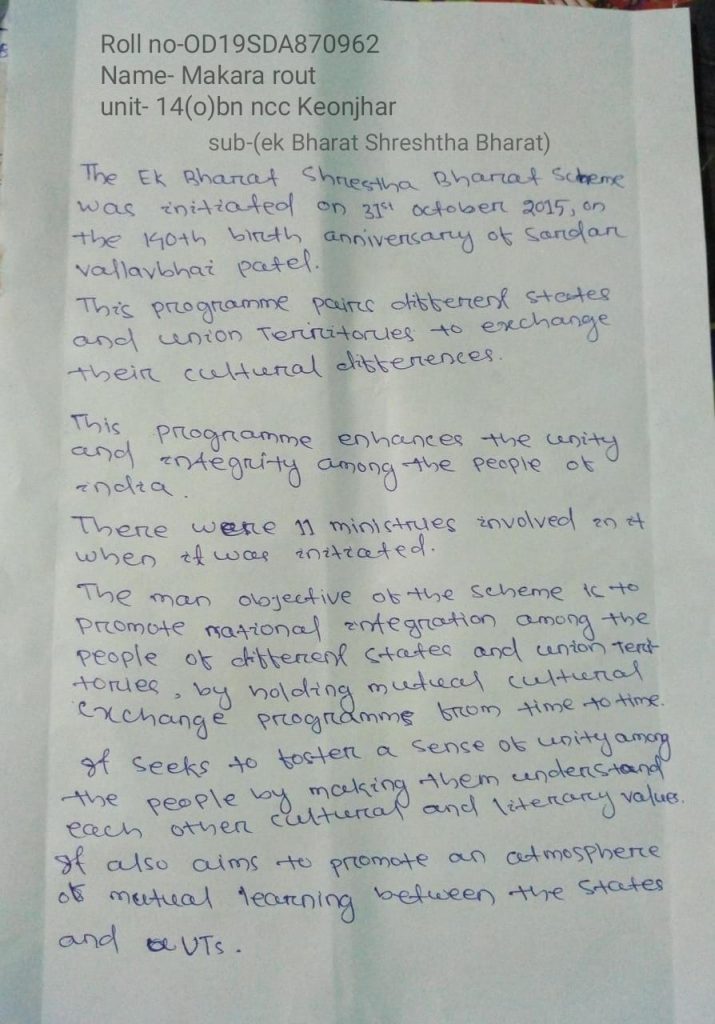 Roll no-OD19SDA870962
Name- Makara rout
unit- 14(o)bn ncc Keonjhar
sub-(ek Bharat Shreshtha Bharat)
The Ek Bharat Shrestha Bharat Scheme
was initiated on 31st october 2015, on
the 140th birth anniversary of Sardar
vallavbhai patel.
This programme pairs different states
and union Territories to exchange
their cultural differences.
This programme enhances the unity
and integrity among the people of
india.
There were 11 ministries involved in it
when it was initiated.
The man objective of the scheme is to
promote national integration among the
people of different states and union Terit
tories, by holding mutual cultural
exchange programms from time to time.
It seeks to foster a sense of unity among
the people by making them understand
each other cultural and literary values.
It also aims to promote an atmosphere
of mutual learning between the states
and UTs.